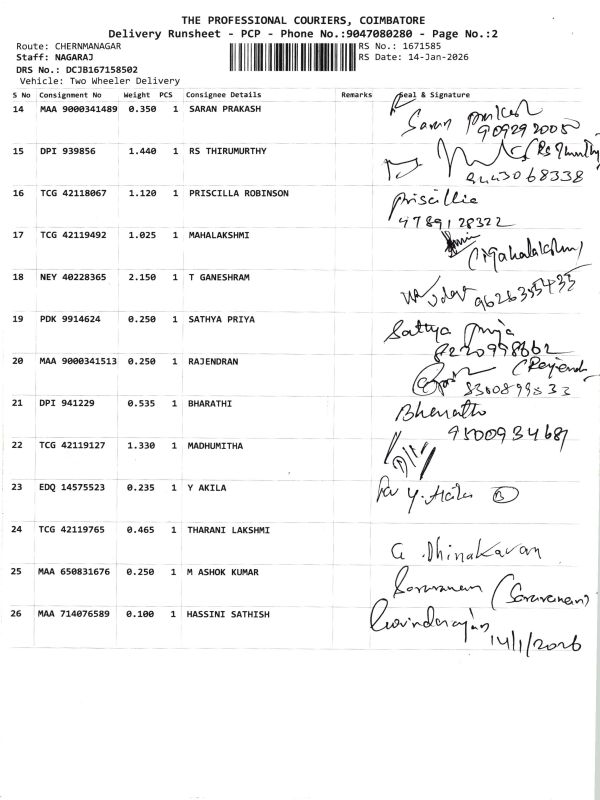 THE PROFESSIONAL COURIERS, COIMBATORE
Delivery Runsheet - PCP - Phone No.:9047080280 - Page No.:2
Route: CHERNMANAGAR RS No.: 1671585
Staff: NAGARAJ RS Date: 14-Jan-2026
DRS No.: DCJB167158502
Vehicle: Two Wheeler Delivery
S No Consignment No Weight PCS Consignee Details Remarks Seal & Signature
14 MAA 9000341489 0.350 1 SARAN PRAKASH Saran
9092920050
15 DPI 939856 1.440 1 RS THIRUMURTHY
9443068338
16 TCG 42118067 1.120 1 PRISCILLA ROBINSON Priscillia
4789128322
17 TCG 42119492 1.025 1 MAHALAKSHMI (Mahalakshmi)
18 NEY 40228365 2.150 1 T GANESHRAM
19 PDK 9914624 0.250 1 SATHYA PRIYA Sathya priya
8220998662
20 MAA 9000341513 0.250 1 RAJENDRAN
21 DPI 941229 0.535 1 BHARATHI Bharathi
9500934687
22 TCG 42119127 1.330 1 MADHUMITHA
23 EDQ 14575523 0.235 1 Y AKILA For Y. Akila
24 TCG 42119765 0.465 1 THARANI LAKSHMI G. Dhinakaran
25 MAA 650831676 0.250 1 M ASHOK KUMAR Saravanan (Saravanan)
26 MAA 714076589 0.100 1 HASSINI SATHISH Govindarajan
14/1/2026